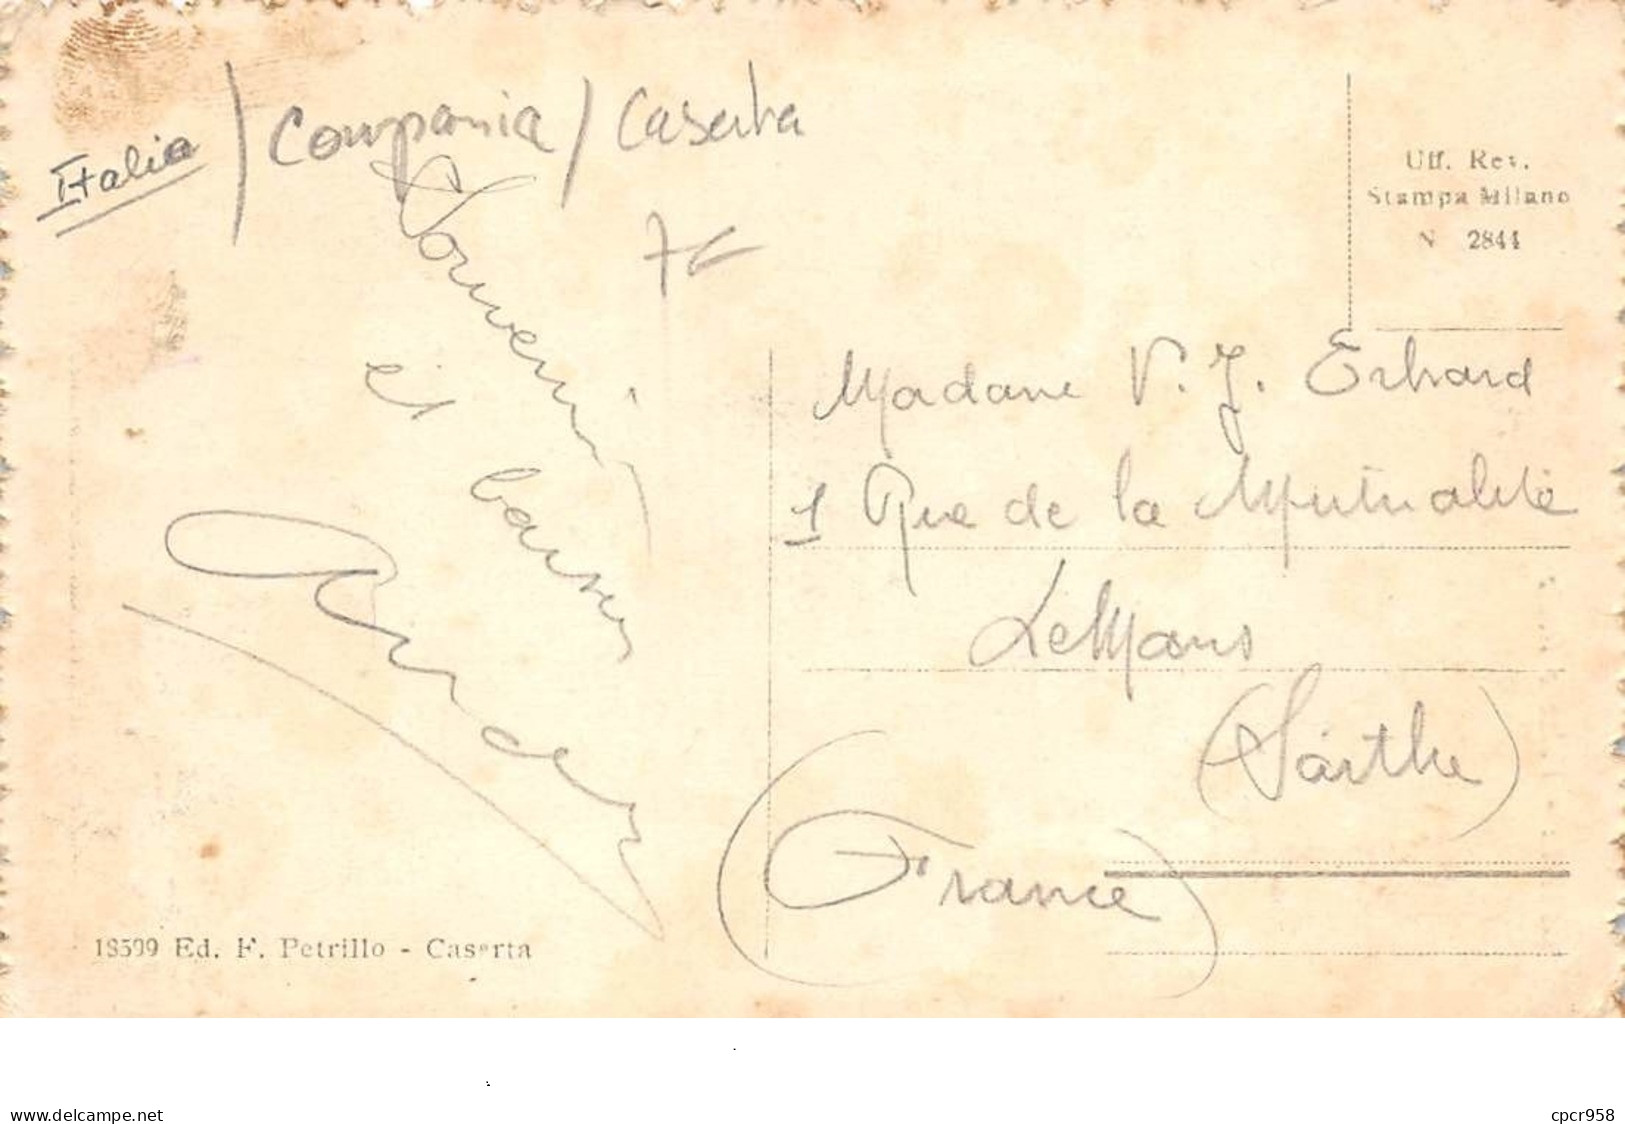 Italia / Campania / Caserta
7€
Uff. Rev.
Stampa Milano
N 2844
Souvenir
et baisers
Madame V. J. Erhard
1 Rue de la Mutualité
Le Mans
(Sarthe)
(France)
18599 Ed. F. Petrillo - Caserta
www.delcampe.net
cpcr958